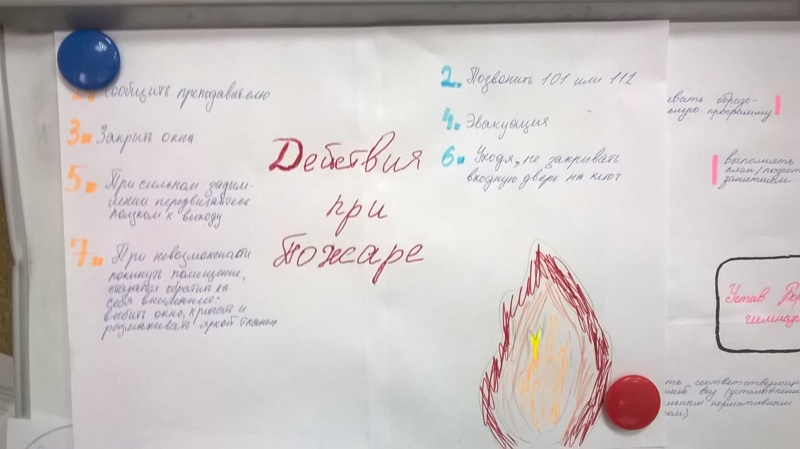 1. Сообщить преподавателю
3. Закрыть окна
5. При сильном задым-
лении передвигайтесь
ползком к выходу
7. При невозможности
покинуть помещение,
старайся обратить на
себя внимание:
выбить окно, кричать и
размахивать яркой тканью
Действия
при
Пожаре
2. Позвонить 101 или 112
4. Эвакуация
6. Уходя, не закрывать
входную дверь на ключ
образо-
программу
выполнять
занятиям
Устав
соответствующ